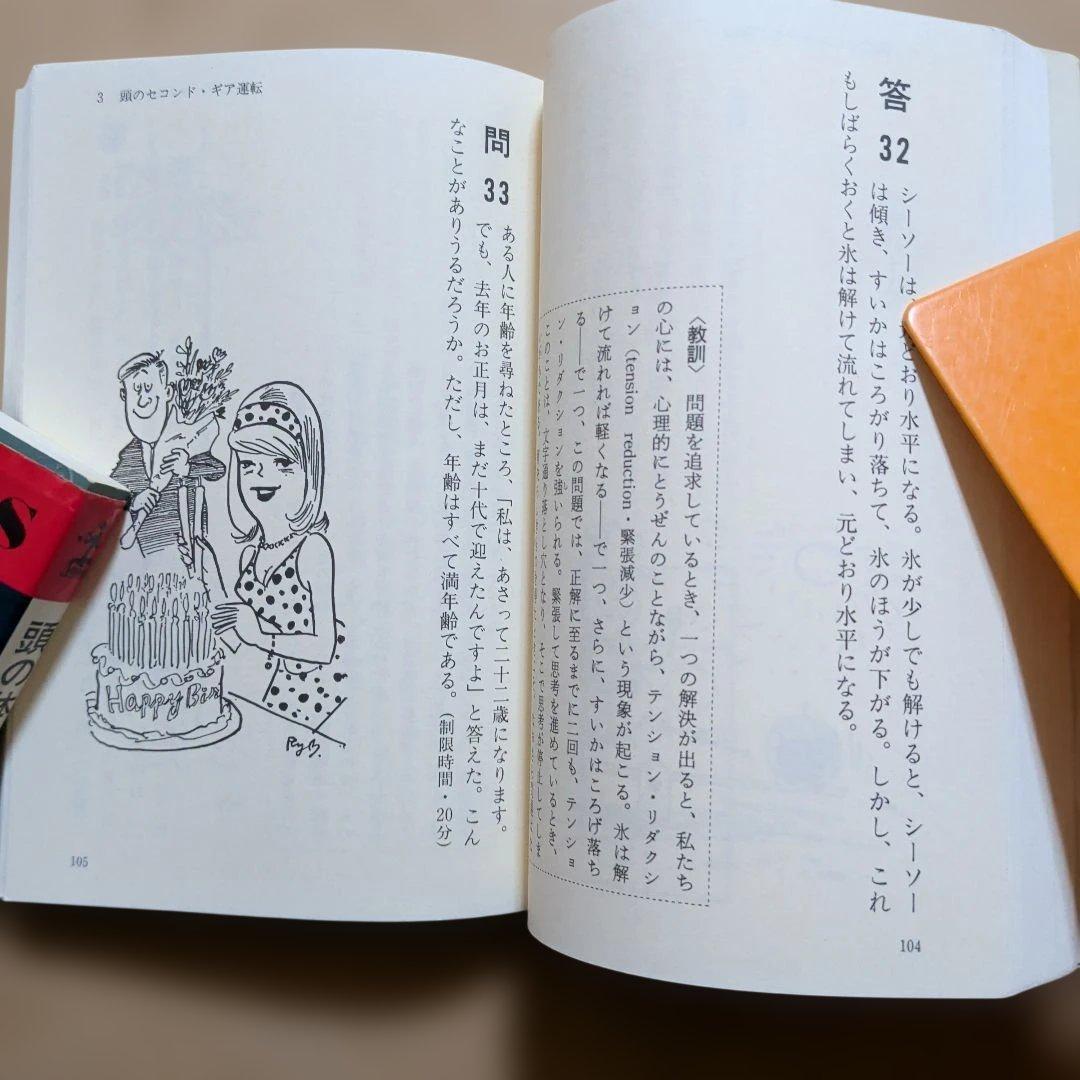 答
32
シーソーは、
どおり水平になる。氷が少しでも解けると、シーソー
は傾き、すいかはころがり落ちて、氷のほうが下がる。しかし、これ
もしばらくおくと氷は解けて流れてしまい、元どおり水平になる。
〈教訓〉 問題を追求しているとき、一つの解決が出ると、私たち
の心には、心理的にとうぜんのことながら、テンション・リダクシ
ョン(tension reduction・緊張減少)という現象が起こる。氷は解
けて流れれば軽くなる——で一つ、さらに、すいかはころげ落ち
る——で一つ、この問題では、正解に至るまでに二回も、テンショ
ン・リダクションを強いられる。緊張して思考を進めているとき、
このことは、文字通り落とし穴となり、そこで思考が停止してしま
104
3 頭のセコンド・ギア運転
問
33
ある人に年齢を尋ねたところ、「私は、あさって二十二歳になります。
でも、去年のお正月は、まだ十代で迎えたんですよ」と答えた。こん
なことがありうるだろうか。ただし、年齢はすべて満年齢である。(制限時間・20分)
Happy Bir
RyB.
105
S
頭の体